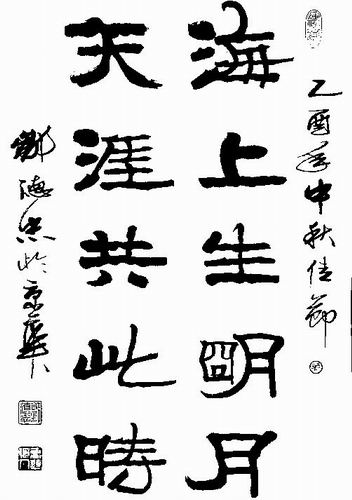 乙酉年中秋佳節
海上生明月
天涯共此時
鄧德忠於京華